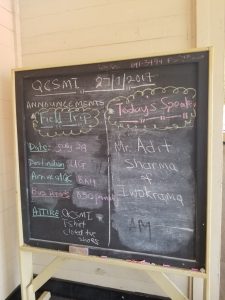 QCSMI 27/1/2017
ANNOUNCEMENTS
Field Trip
Date: July 29
Destination: UG
Arrive at QC
Bus Departs 8:30
ATTIRE QCSMI
T shirt
closed toe
shoes
Today's Speaker
Mr. Adit
Sharma
of
Iwokrama
AM